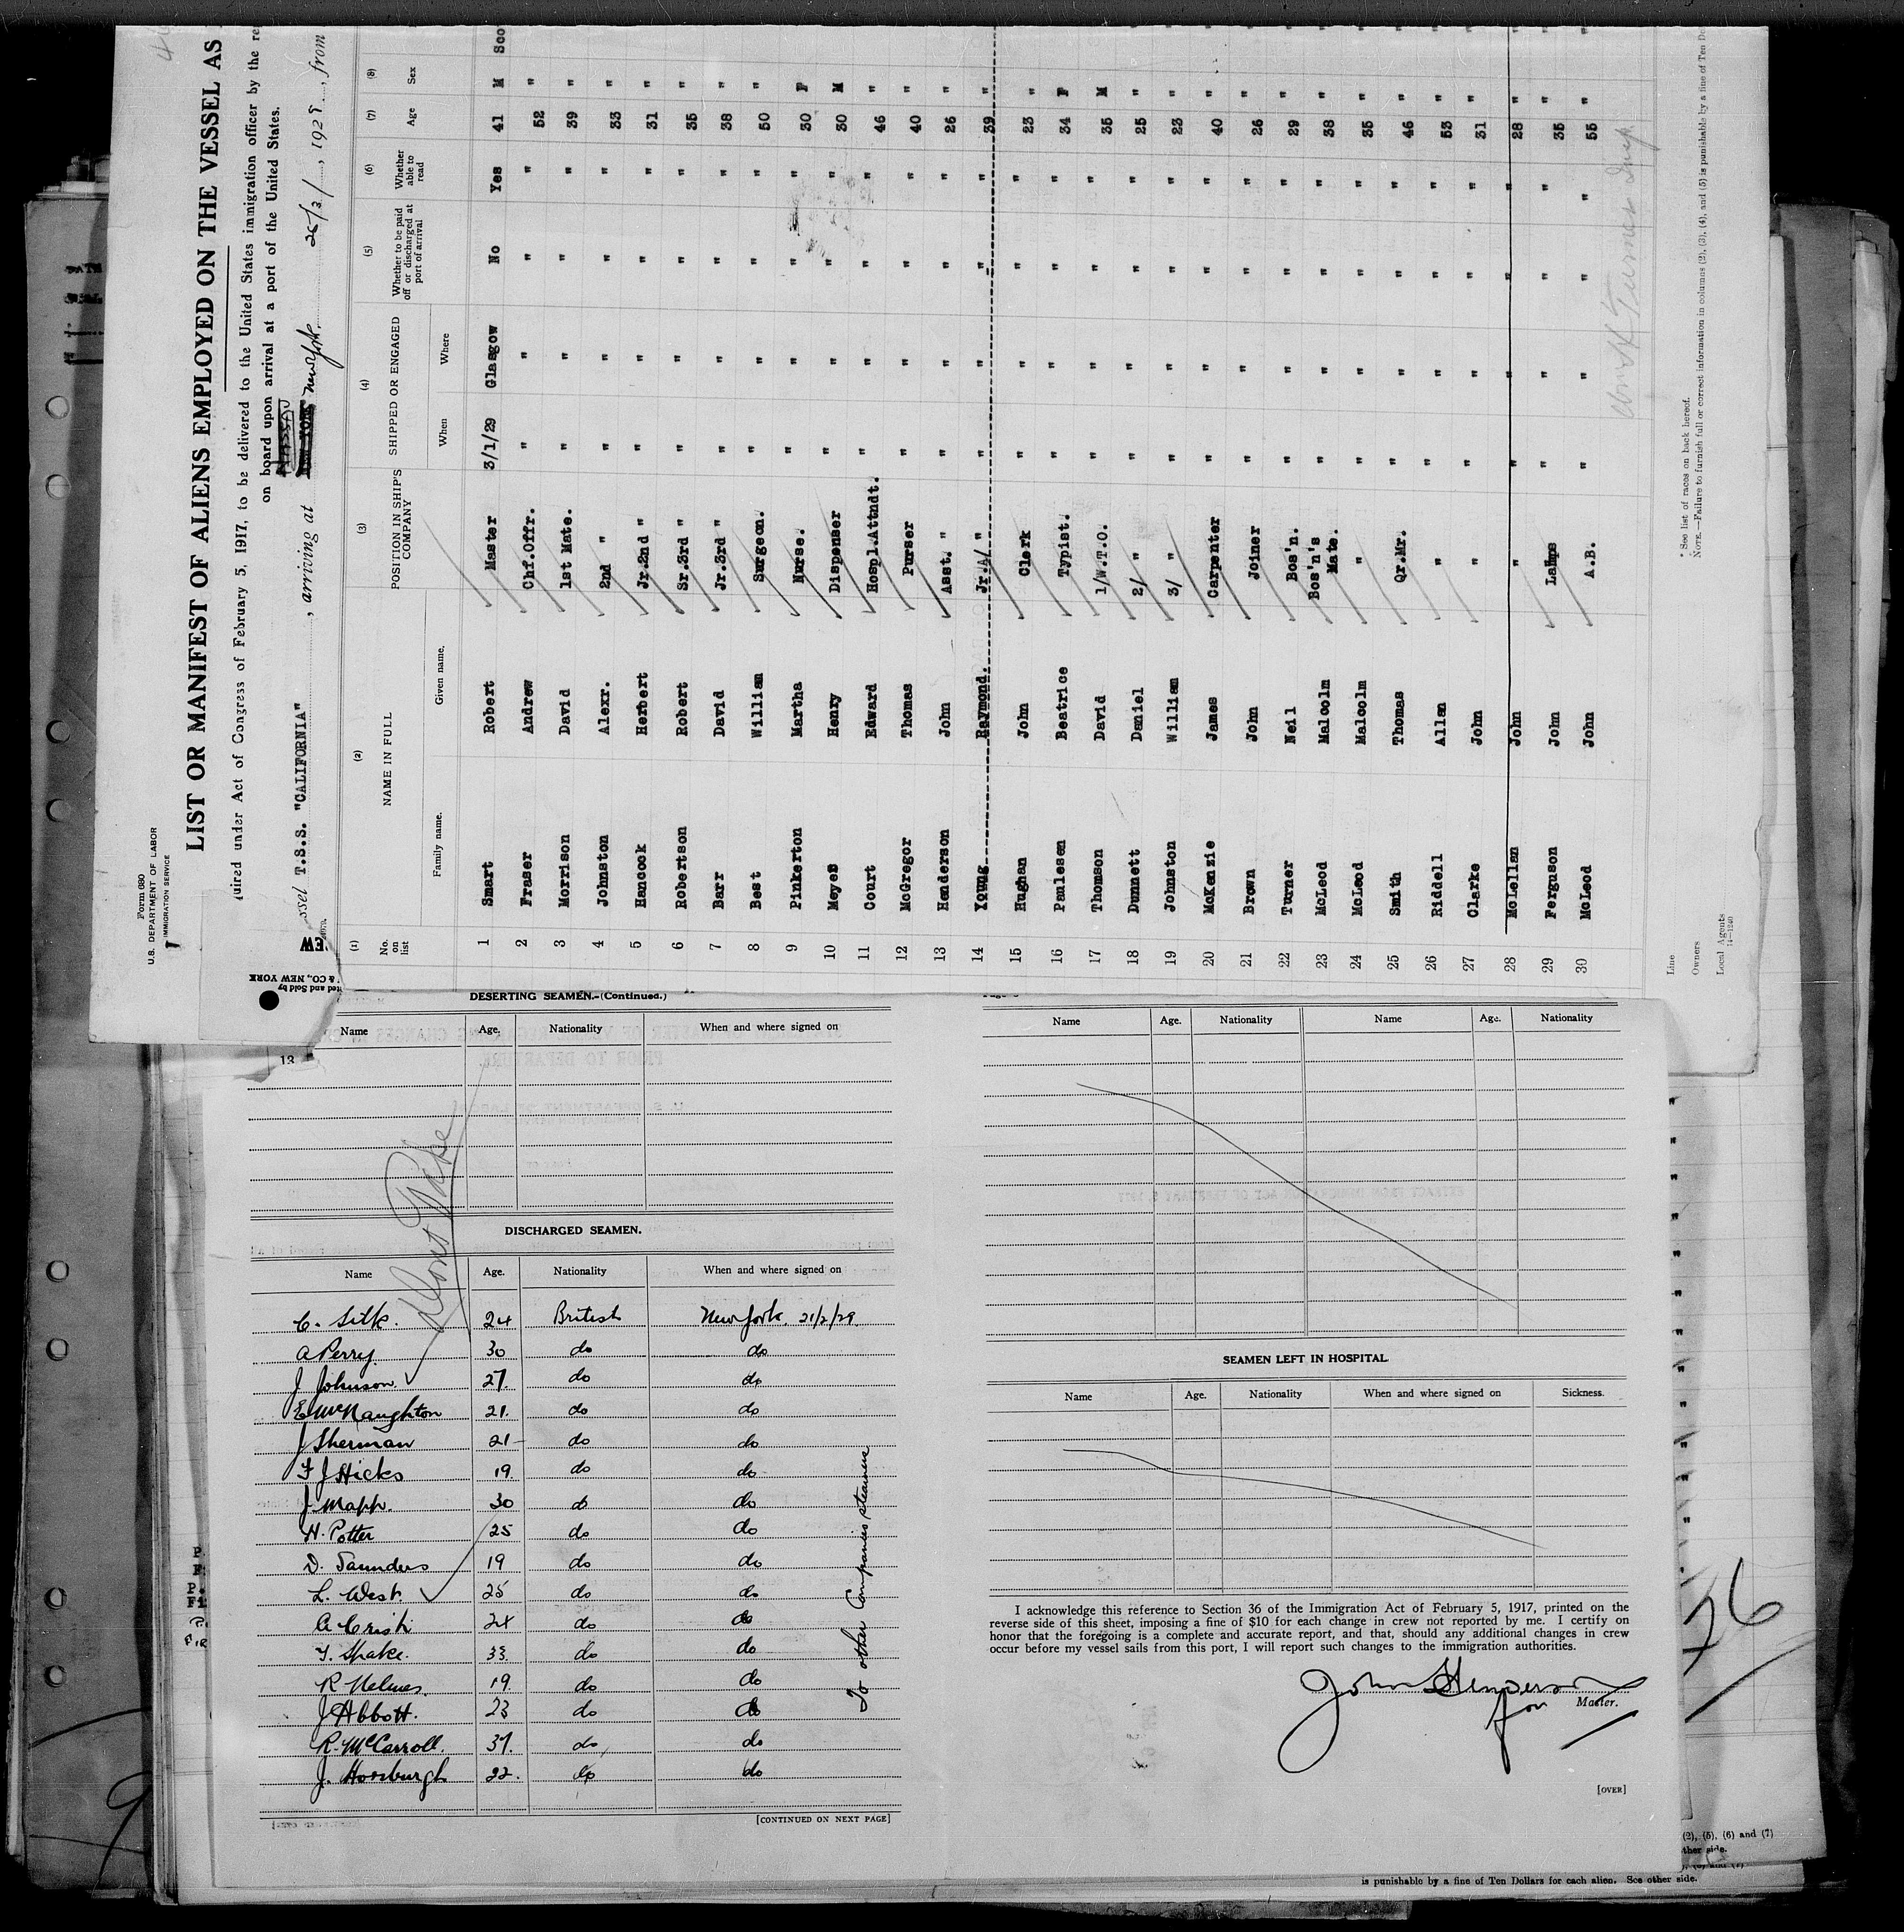 Form 680
U.S. DEPARTMENT OF LABOR
IMMIGRATION SERVICE
LIST OR MANIFEST OF ALIENS EMPLOYED ON THE VESSEL AS
quired under Act of Congress of February 5, 1917, to be delivered to the United States immigration officer by the re
on board upon arrival at a port of the United States.
ssel T.S.S. "CALIFORNIA", arriving at New York 25/3/, 1929, from
(1) (2) (3) (4) (5) (6) (7) (8)
No. on list NAME IN FULL POSITION IN SHIP'S COMPANY SHIPPED OR ENGAGED Whether to be paid off or discharged at port of arrival Whether able to read Age Sex
Family name. Given name. When Where
1 Smart Robert Master 3/1/29 Glasgow No Yes 41 M Sco
2 Fraser Andrew Chf.Offr. " " " " 52 "
3 Morrison David 1st Mate. " " " " 39 "
4 Johnston Alexr. 2nd " " " " " 33 "
5 Hancock Herbert Jr.2nd " " " " " 31 "
6 Robertson Robert Sr.3rd " " " " " 35 "
7 Barr David Jr.3rd " " " " " 38 "
8 Best William Surgeon. " " " " 50 "
9 Pinkerton Martha Nurse. " " " " 30 F
10 Meyes Henry Dispenser " " " " 30 M
11 Court Edward Hospl.Attndt. " " " " 46 "
12 McGregor Thomas Purser " " " " 40 "
13 Henderson John Asst. " " " " " 26 "
14 Young Raymond. Jr.A/ " " " " " 39 "
15 Hughan John Clerk " " " " 23 "
16 Paulesen Beatrice Typist. " " " " 34 F
17 Thomson David 1/W.T.O. " " " " 35 M
18 Dunnett Daniel 2/ " " " " " 25 "
19 Johnston William 3/ " " " " " 23 "
20 McKenzie James Carpenter " " " " 40 "
21 Brown John Joiner " " " " 26 "
22 Turner Neil Bos'n. " " " " 29 "
23 McLeod Malcolm Bos'n's Mate. " " " " 38 "
24 McLeod Malcolm " " " " " 35 "
25 Smith Thomas Qr.Mr. " " " " 46 "
26 Riddell Allan " " " " " 53 "
27 Clarke John " " " " " 31 "
28 McLellan John " " " " " 28 "
29 Ferguson John Lamps " " " " 35 "
30 McLeod John A.B. " " " " 55 "
Line
Owners
Local Agents
14-1240
* See list of races on back hereof.
NOTE.—Failure to furnish full or correct information in columns (2), (3), (4), and (5) is punishable by a fine of Ten Do
& CO., NEW YORK
nted and Sold by
DESERTING SEAMEN.-(Continued.)
Name Age. Nationality When and where signed on
13
DISCHARGED SEAMEN.
Name Age. Nationality When and where signed on
C. Silk. 24 British New York. 21/2/29
A Perry. 30 do do
J Johnson 27. do do
E McNaughton 21. do do
J Sherman 21 do do
F J Hicks 19. do do
J. Mapp. 30 do do
H. Potter 25 do do
D. Saunders 19 do do
L. West. 25 do do
A Crisk 24 do do
T. Shake. 33. do do
R Helmes. 19. do do
J Abbott. 23 do do
R. McCarroll. 37. do do
J. Horsburgh 22. do do
To other Companies steamers
[CONTINUED ON NEXT PAGE]
Name Age. Nationality Name Age. Nationality
SEAMEN LEFT IN HOSPITAL.
Name Age. Nationality When and where signed on Sickness.
I acknowledge this reference to Section 36 of the Immigration Act of February 5, 1917, printed on the
reverse side of this sheet, imposing a fine of $10 for each change in crew not reported by me. I certify on
honor that the foregoing is a complete and accurate report, and that, should any additional changes in crew
occur before my vessel sails from this port, I will report such changes to the immigration authorities.
John Henderson
for Master.
[OVER]
76
(2), (5), (6) and (7)
ther side.
is punishable by a fine of Ten Dollars for each alien. See other side.